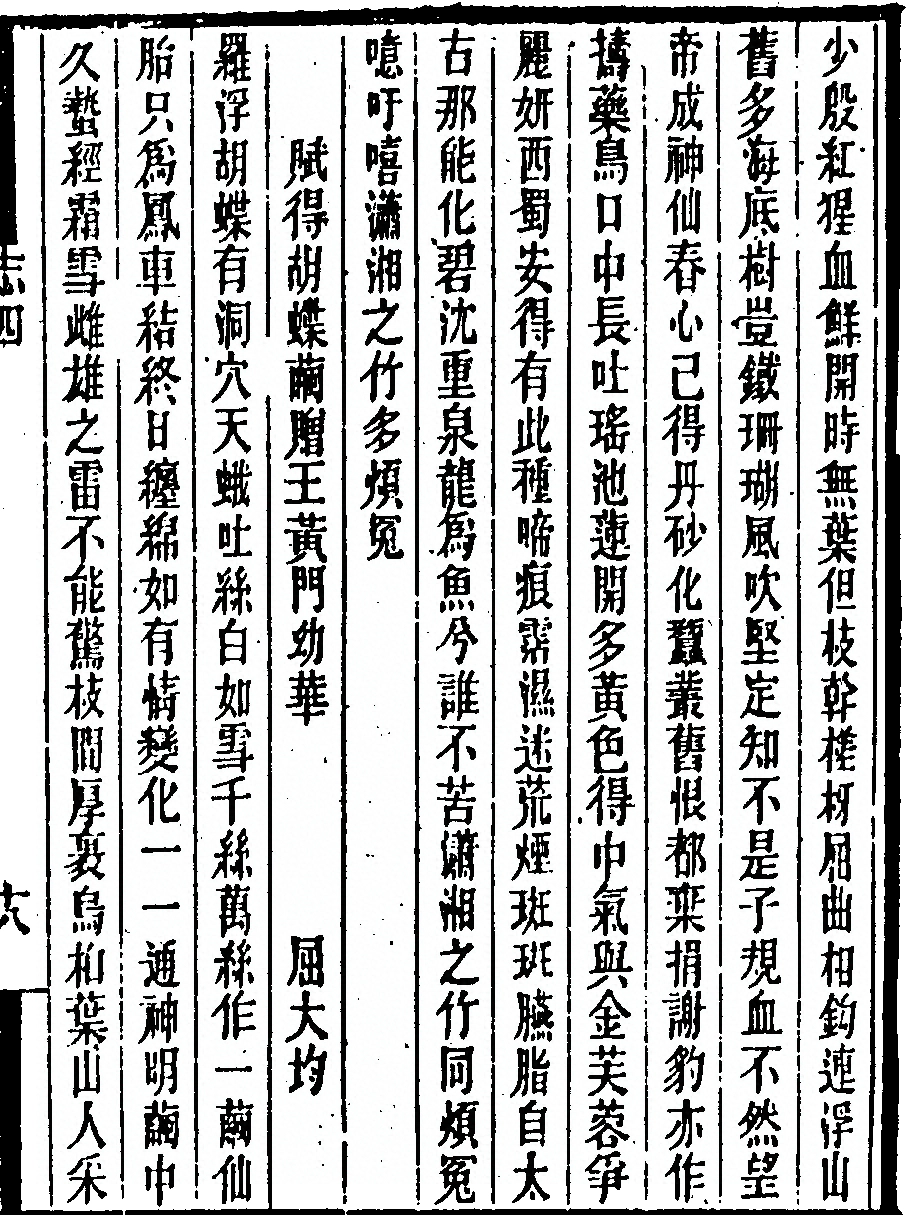 少殷紅猩血鮮開時無葉但枝幹槎枒屈曲相鈎連浮山
舊多海底樹豈鐵珊瑚風吹堅定知不是子規血不然望
帝成神仙春心已得丹砂化蠶叢舊恨都棄捐謝豹亦作
擣藥鳥口中長吐瑤池蓮開多黃色得中氣與金芙蓉爭
麗妍西蜀安得有此種啼痕霑濕迷荒煙斑斑臙脂自太
古那能化碧沈重泉龍爲魚兮誰不苦瀟湘之竹同煩冤
噫吁嘻瀟湘之竹多煩冤
賦得胡蝶繭贈王黃門幼華 屈大均
羅浮胡蝶有洞穴天蛾吐絲白如雪千絲萬絲作一繭仙
胎只爲鳳車結終日纏綿如有情變化一一通神明繭中
久蟄經霜雪雌雄之雷不能驚枝間厚裹烏桕葉山人采
志四
十八